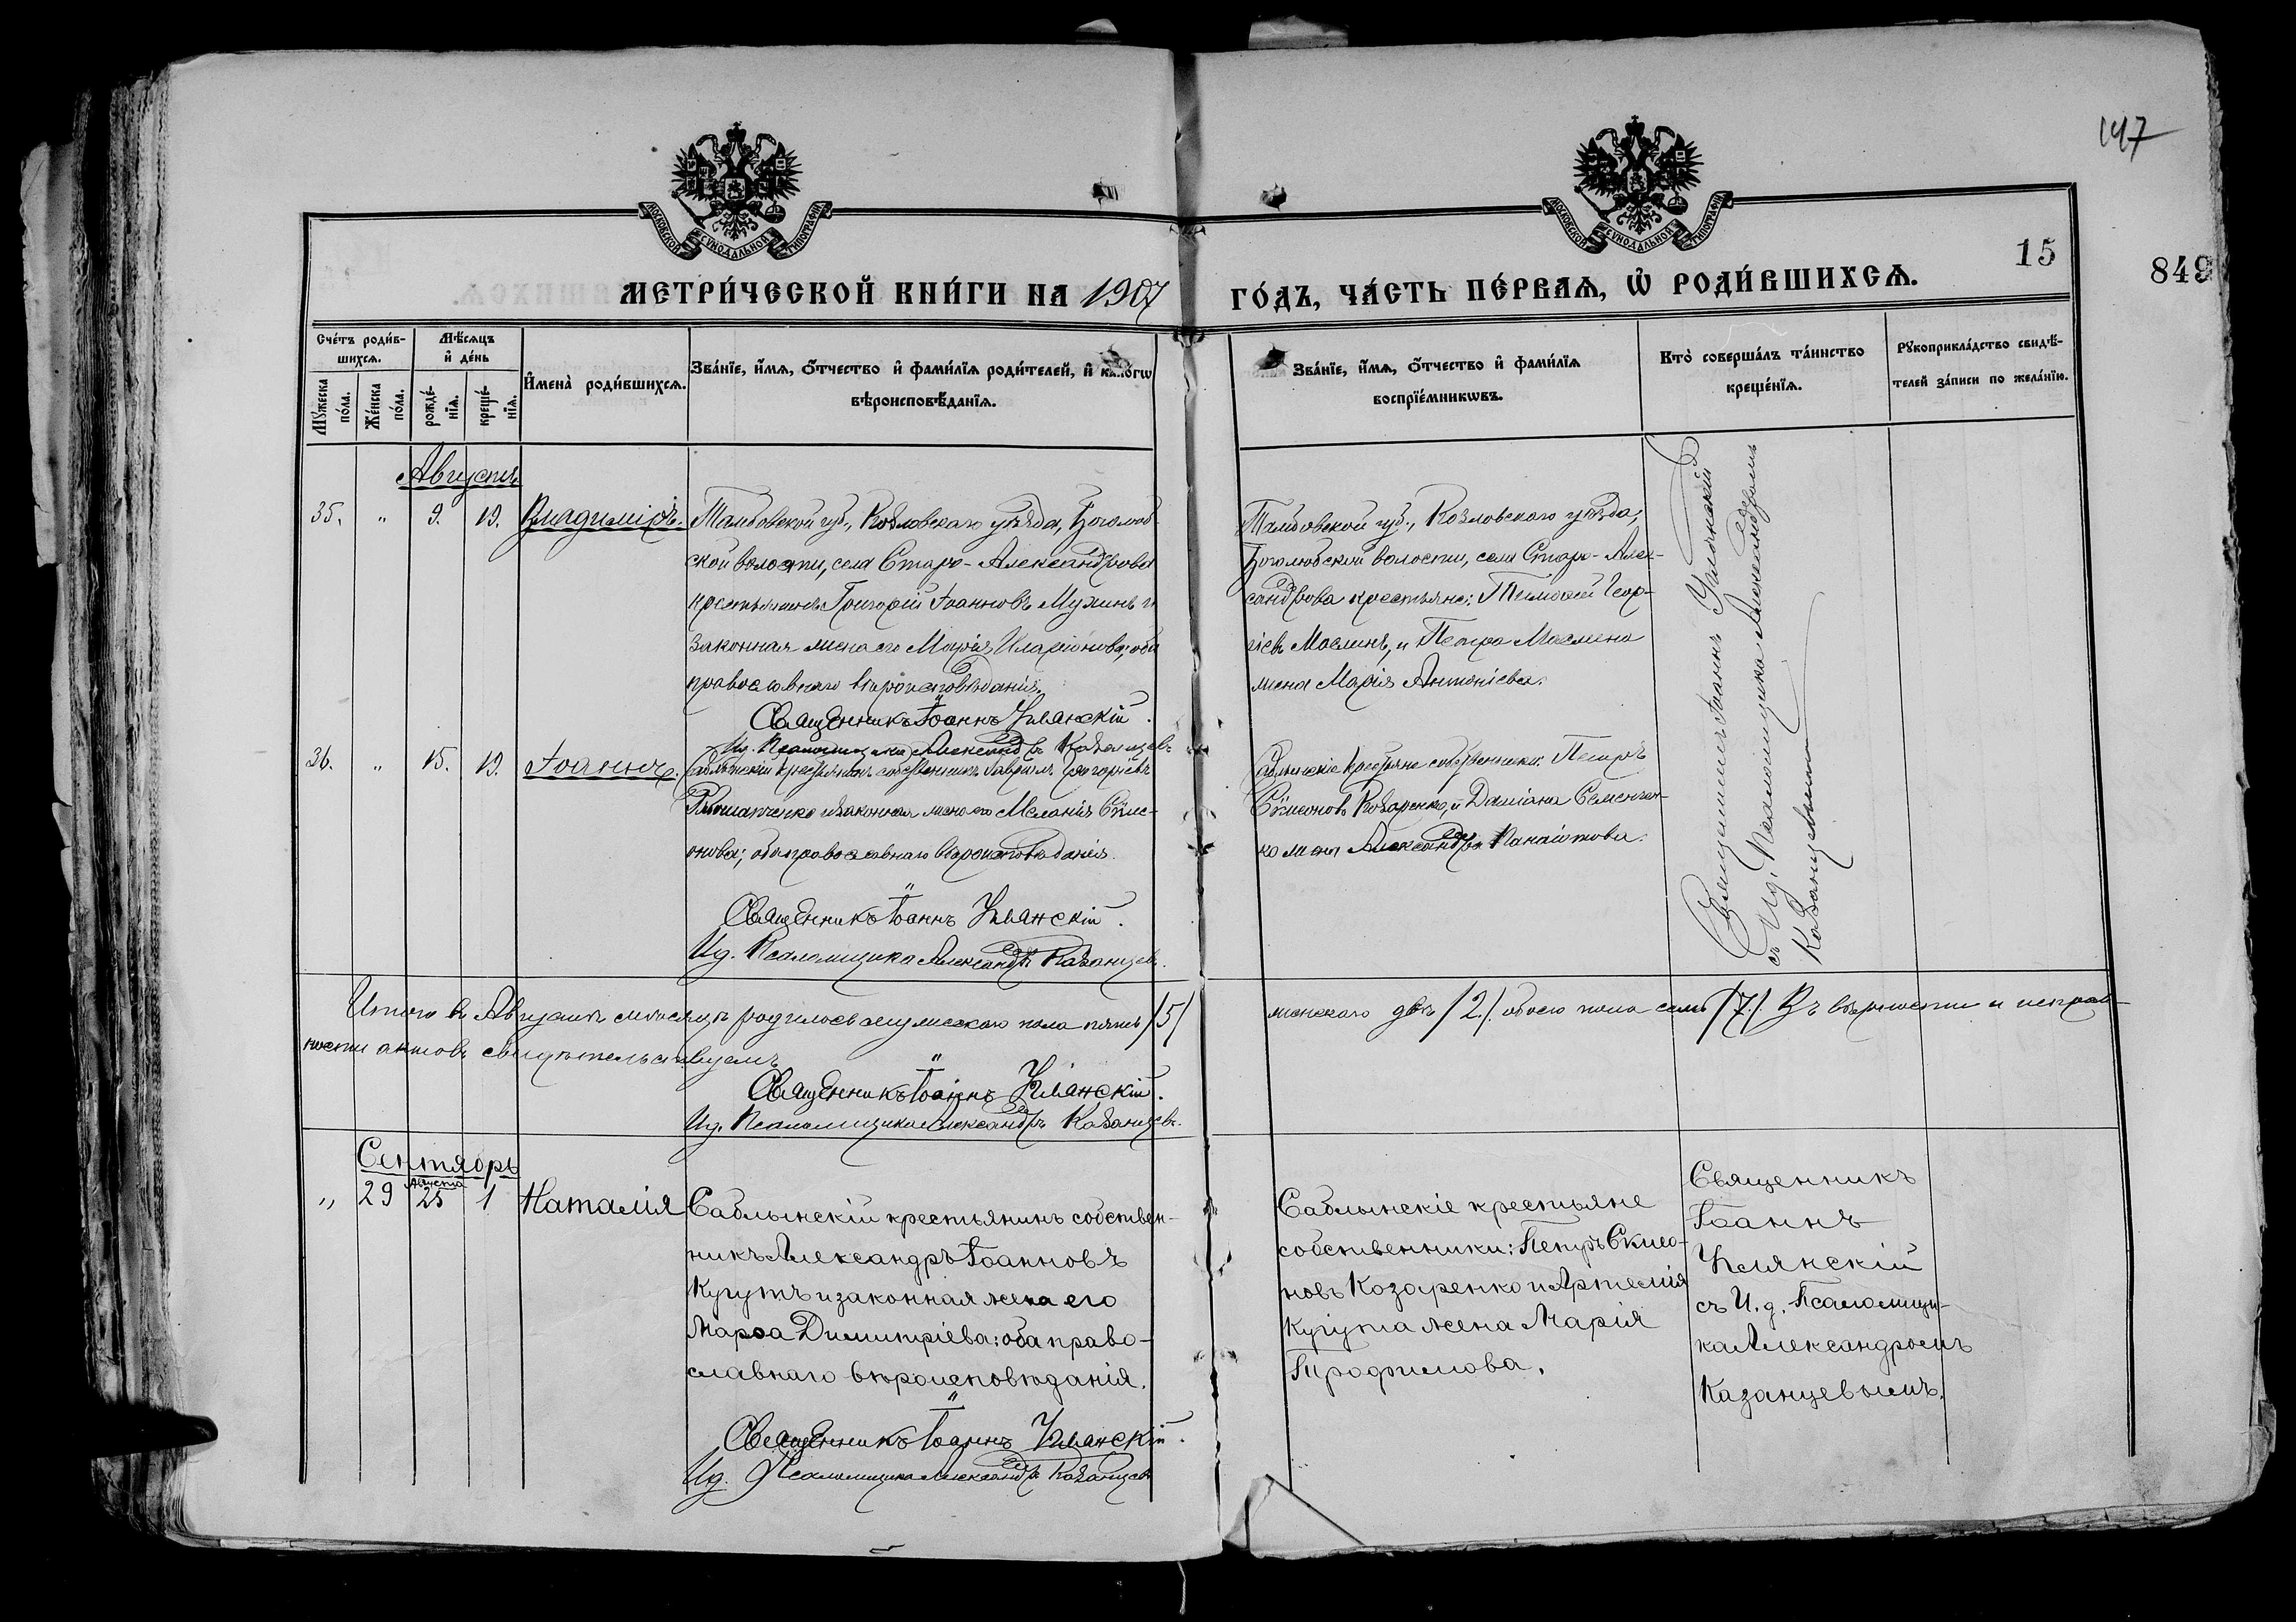 147
МОСКОВСКОЙ СѴНОДАЛЬНОЙ ТИПОГРАФІИ
МОСКОВСКОЙ СѴНОДАЛЬНОЙ ТИПОГРАФІИ
15
849
МЕТРИ́ЧЕСКОЙ КНИ́ГИ НА 1907
ГО́ДЪ, ЧА́СТЬ ПЕ́РВАѦ, Ѡ҆ РОДИ́ВШИХСѦ.
Сче́тъ роди́в-
шихсѧ.
Мѣ́сѧцъ
и҆ де́нь
Мꙋ́жеска
по́ла.
Же́нска
по́ла.
рожде́-
нїѧ.
креще́-
нїѧ.
И҆мена̀ роди́вшихсѧ.
Зва́нїе, и҆́мѧ, ѻ҆́тчество и҆ фами́лїѧ роди́телей, и҆ како́гѡ
вѣроисповѣ́данїѧ.
Зва́нїе, и҆́мѧ, ѻ҆́тчество и҆ фами́лїѧ
воспрїе́мникѡвъ.
Кто̀ соверша́лъ та́инство
креще́нїѧ.
Рꙋкоприкла́дство свидѣ́-
телей за́писи по жела́нїю.
Августъ
35. " 9. 19. Владиміръ.
Тамбовской губ., Козловскаго уѣзда, Боголюб-
ской волости, села Старо-Александрова
крестьянинъ Григорій Іоанновъ Мухинъ и
законная жена его Марія Иларіонова; оба
православнаго вѣроисповѣданія.
Священникъ Іоаннъ Уманскій.
Ид. Псаломщика Александръ Казанцевъ
Тамбовской губ., Козловскаго уѣзда,
Боголюбской волости, села Старо-Алек-
сандрова крестьяне: Тимофей Геор-
гіевъ Маслинъ, и Петра Маслина
жена Марія Антоніева.
Священникъ Іоаннъ Уманскій
съ Ид. Псаломщика Александромъ
Казанцевымъ
36. " 15. 19. Іоаннъ.
Саблынскій крестьянинъ собственникъ Гавріилъ Григорьевъ
законная жена его Меланія Сѵме-
онова; оба православнаго вѣроисповѣданія.
Священникъ Іоаннъ Уманскій.
Ид. Псаломщика Александръ Казанцевъ.
Саблынскіе крестьяне собственники: Петръ
Сѵмеоновъ Козаренко, и Даміана Семенчен-
ко жена Александра Панаіотова.
Итого въ Августѣ мѣсяцѣ родилось мужескаго пола пять /5/
женскаго двѣ /2/. обоего пола семь /7/. Въ вѣрности и исправ-
ности актовъ свидѣтельствуемъ
Священникъ Іоаннъ Уманскій.
Ид. Псаломщика Александръ Казанцевъ.
Сентябрь
Августа
" 29 25 1 Наталія
Саблынскій крестьянинъ собствен-
никъ Александръ Іоанновъ
Кугутъ и законная жена его
Марѳа Димитріева: оба право-
славнаго вѣроисповѣданія.
Священникъ Іоаннъ Уманскій.
Ид. Псаломщика Александръ Казанцевъ
Саблынскіе крестьяне
собственники: Петръ Симео-
новъ Козаренко и Артемія
Кугута жена Марія
Трофимова.
Священникъ
Іоаннъ
Уманскій
съ И. д. Псаломщи-
ка Александромъ
Казанцевымъ.